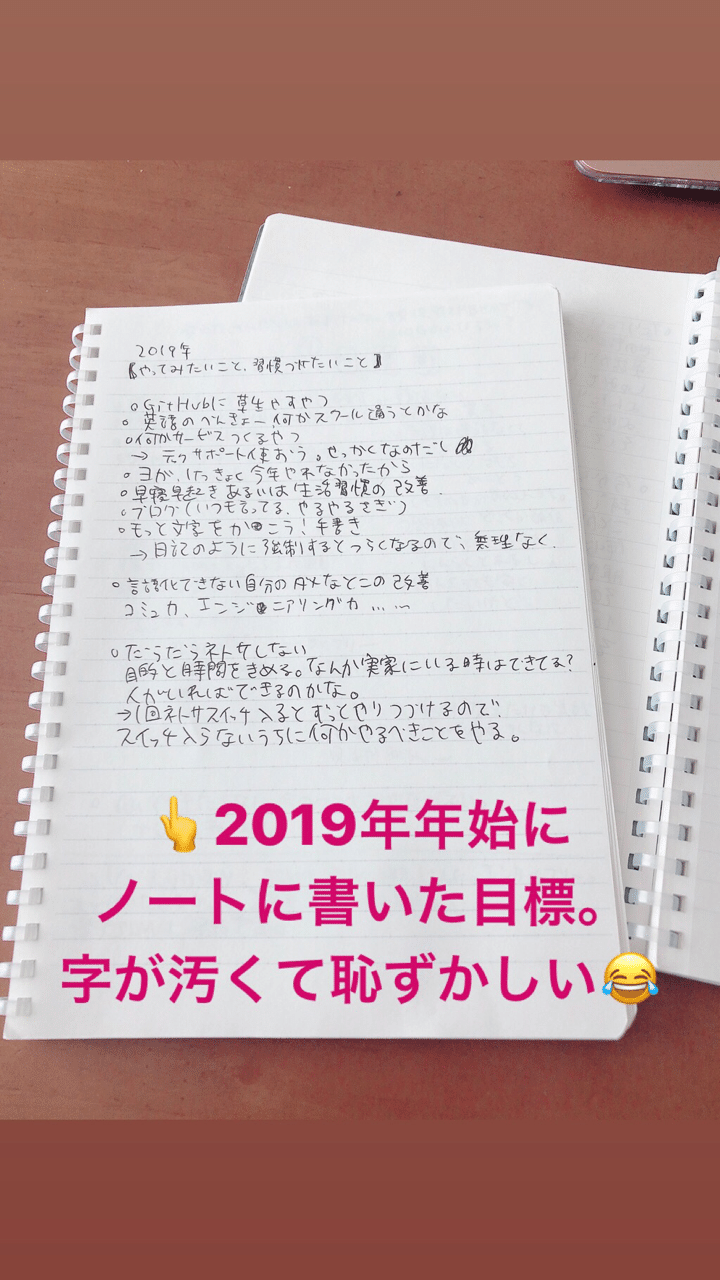 2019年
【やってみたいこと、習慣づけたいこと】
○GitHubに草生やすやつ
○英語のべんきょー、何かスクール通うとかな
○何かサービスつくるやつ
→ テクサポート使おう。せっかくなのだし
○ヨガ、けっきょく今年やれなかったから
○早寝早起きあるいは生活習慣の改善.
○ブログ(いつも言ってる、やるやるさぎ)
○もっと文字をかこう!手書き
→日記のように強制するとつらくなるので、無理なく.
○言語化できない自分のダメなとこの改善
コミュ力、エンジニアリング力......
○だらだらネトサしない
目的と時間をきめる。なんか実家にいる時はできてる?
人がいればできるのかな。
→1回ネトサスイッチ入るとずっとやりつづけるので
スイッチ入らないうちに何かやるべきことをやる。
👆2019年年始に
ノートに書いた目標。
字が汚くて恥ずかしい😂